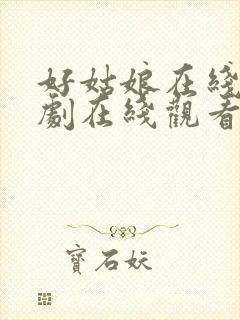 好姑娘在綫
劇在綫觀看
寶石妖